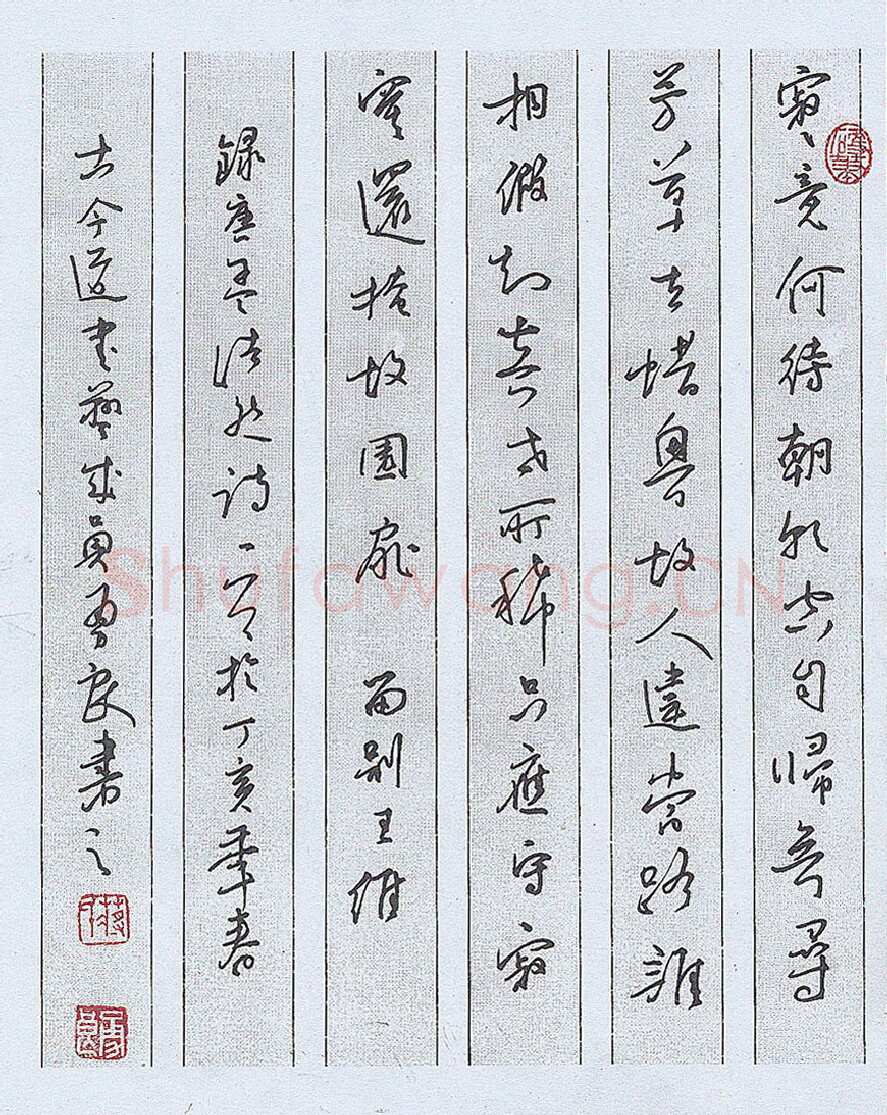 寂、竟何待朝朝空自歸欲尋
芳草去惜與故人違當路誰
相假知音世所稀只應守寂
寞還掩故園扉 留别王維
録唐孟浩然詩一首於丁亥年春
古今道書藝成員勇良書之
Shufawang.CN